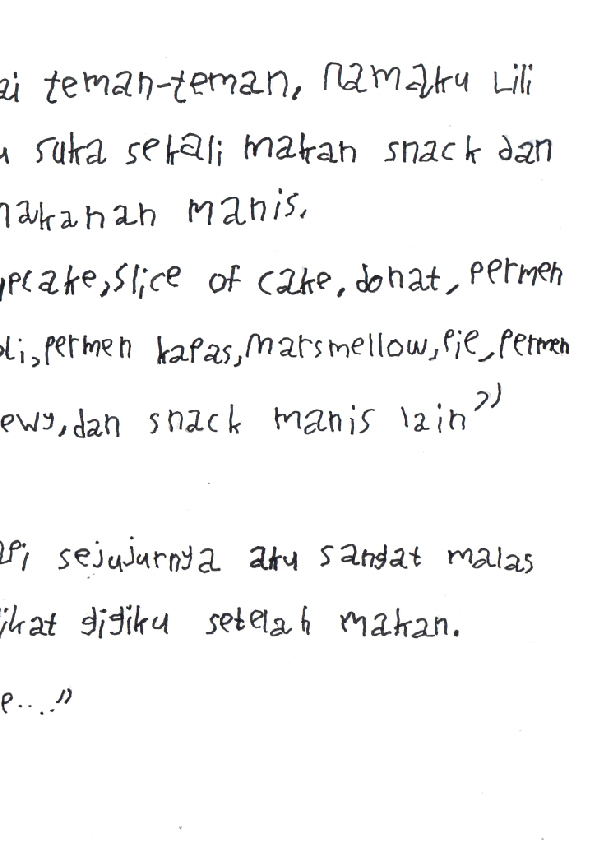 ai teman-teman, namaku Lili
u suka sekali makan snack dan
makanan manis.
pcake,slice of cake, donat, permen
oli,permen kapas,marsmellow,pie,permen
ewy,dan snack manis lain"
api sejujurnya aku sangat malas
ikat gigiku setelah makan.
e...."